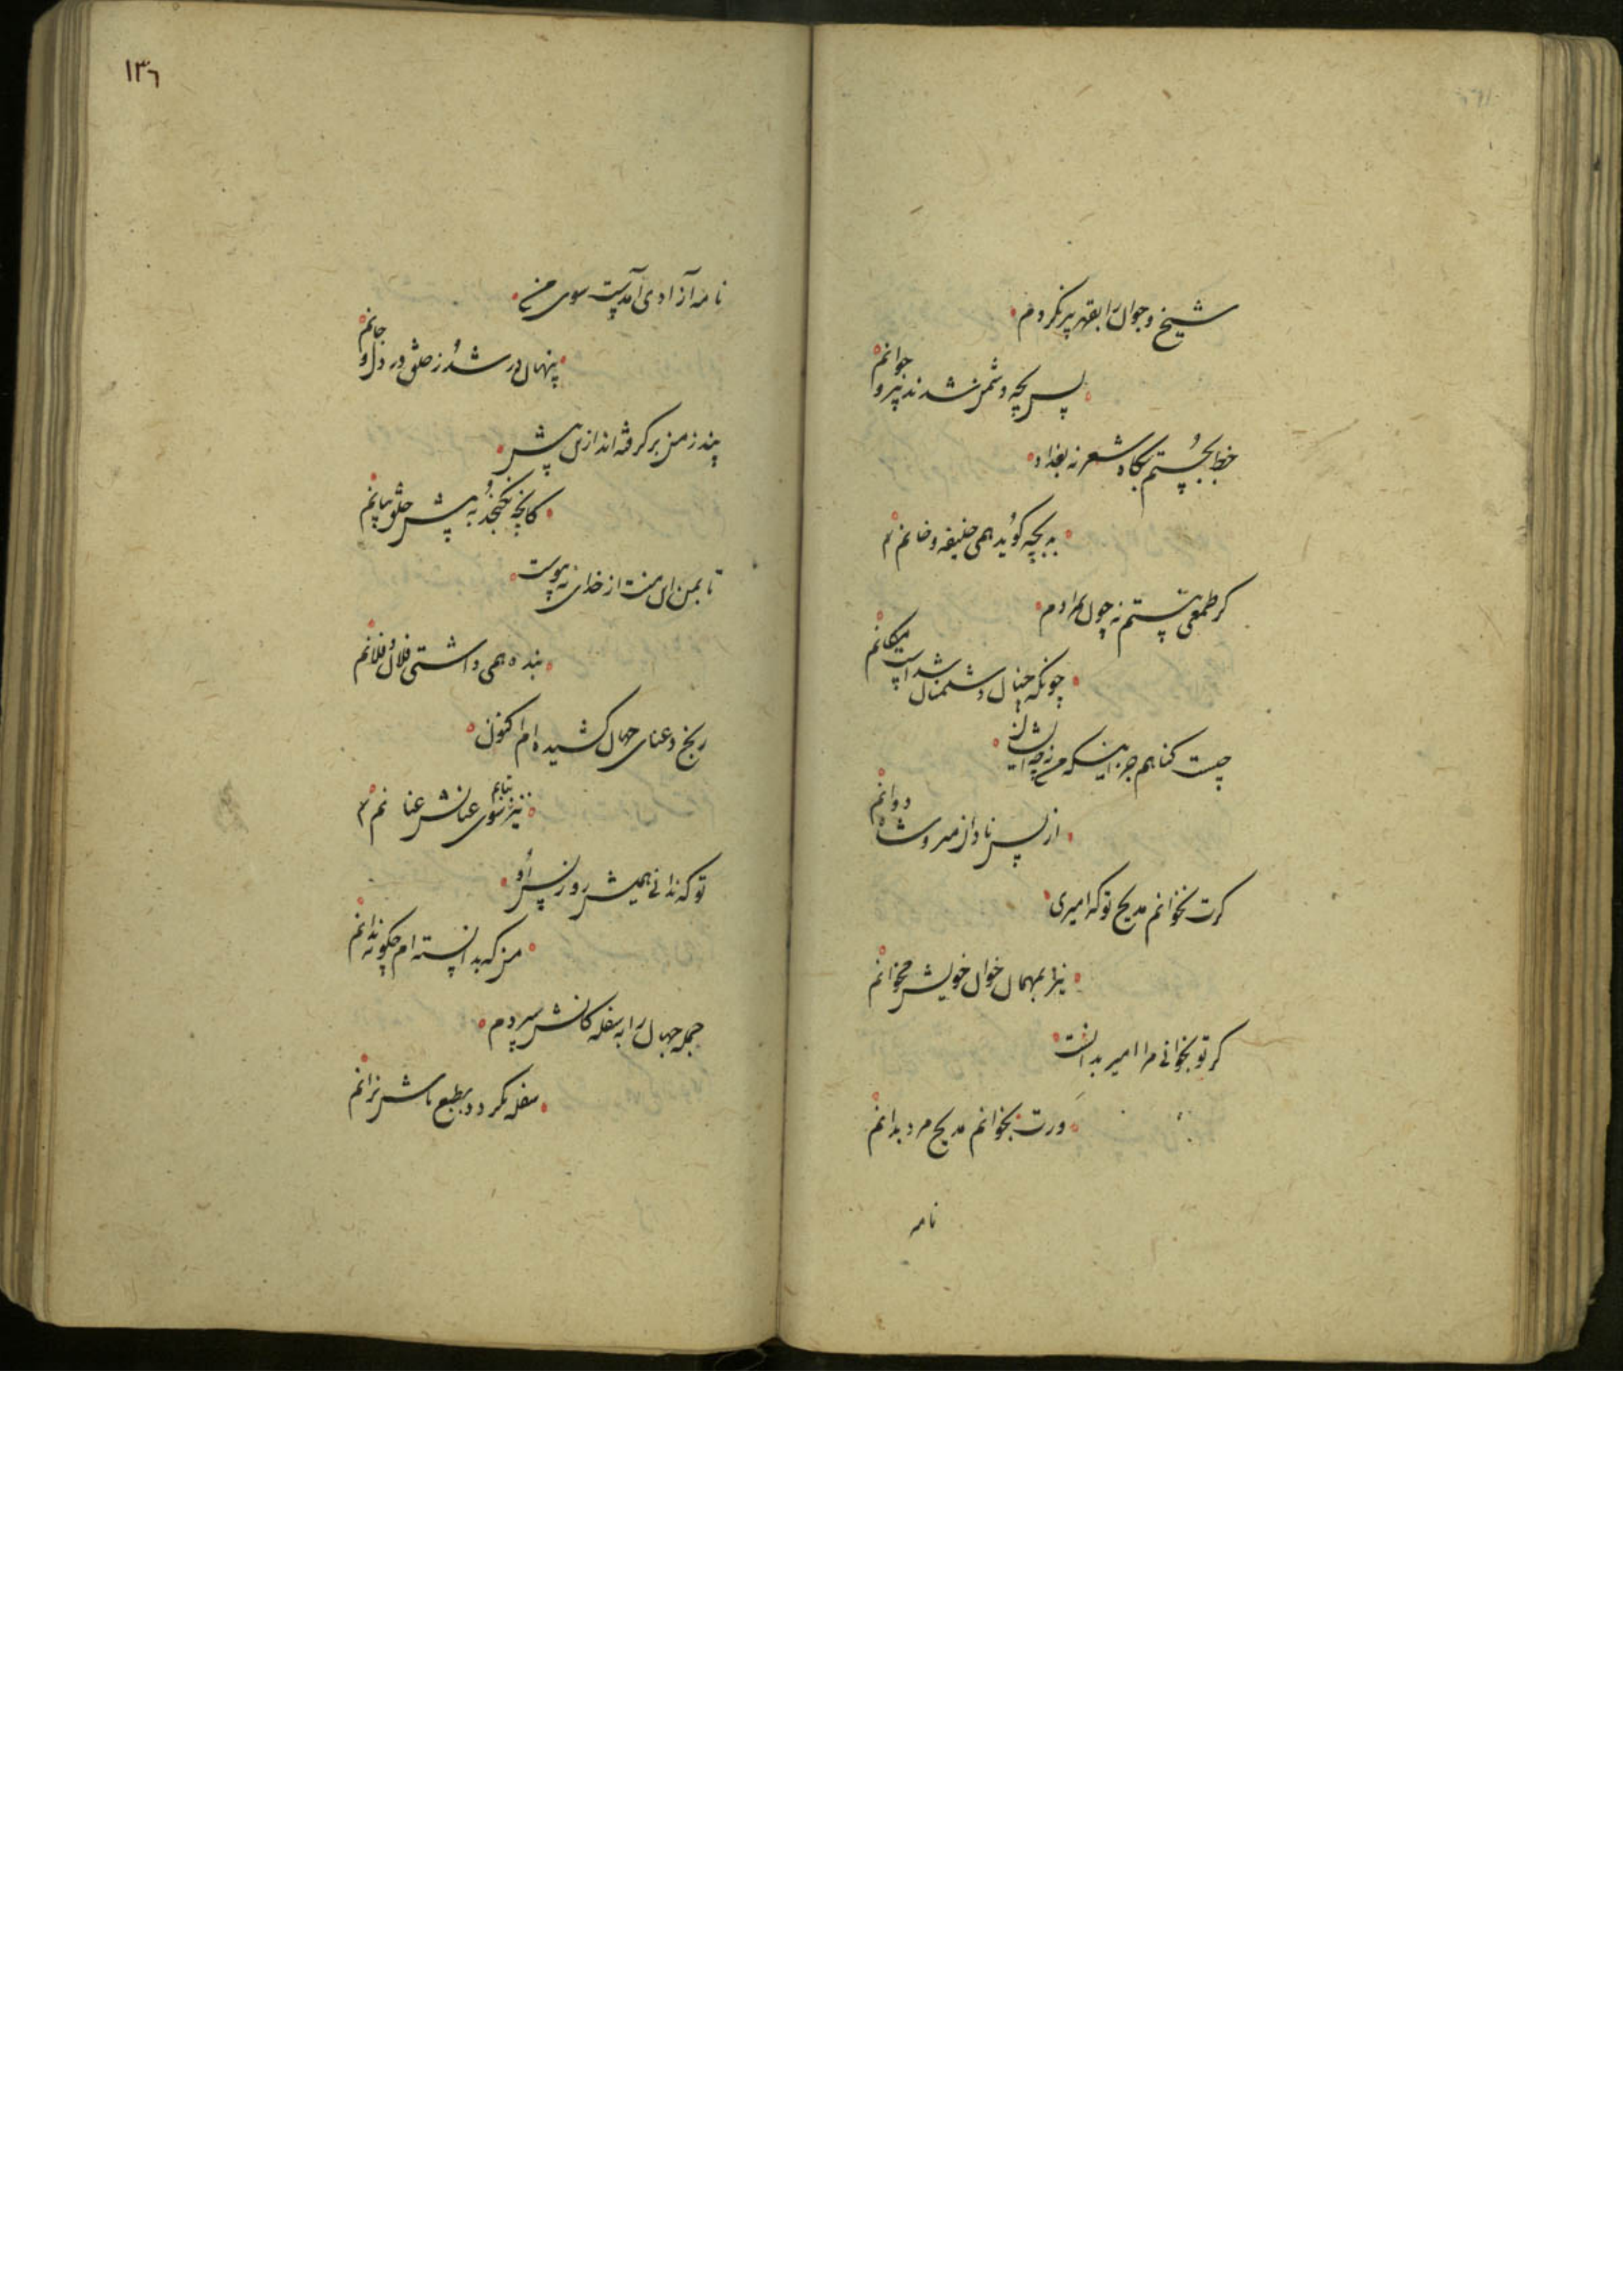 شیخ و جوان را بقهر پیر نکردم
پس بچه دشمن شدند پیر و جوانم
خط بجستم بگاه شعر نه بغداد
به بچه گوید همی خلیفه و خانم
گر طمعی نیستم نه چون مرادم
چونکه چنان دشمنان شداست مکانم
چیست گناهم جز اینکه من نه چو ایشان
از پس نادان نمیروم
گرت نخوانم مدیح تو که امیری
نیز بمهمان خوان خویش مخوانم
گر تو بخوانی مرا امیر بدانت
ورت بخوانم مدیح مرد بدانم
نامه
١٣٦
نامه آزادی آمدست سوی من
پنهان در شد ز خلق در دل و جانم
بند ز من بر گرفته اند ازین پیش
کانچه نگنجد به پیش خلق نیاتم
تا بمن این منت از خدای نه پیوست
بنده همی داشتی فلان و فلانم
رنج و عنای جهان کشیده ام اکنون
نیز سوی عنانش عنا نتابم
تو که ندانی همیش روز پس او
من که بدانسته ام چگونه ندانم
جمله جهان را به سفله کانش سپردم
سفله نگردد بطبع باش نرانم